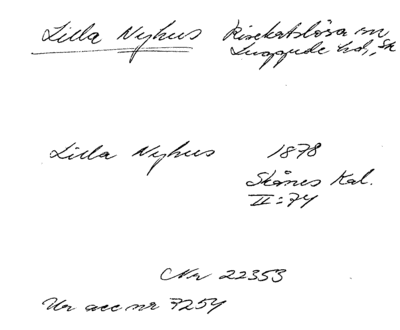 Lilla Nyhus Risekatslösa sn
Luggude hd, Sk
Lilla Nyhus 1878
Skånes Kal.
II:74
Nr 22353
Ur acc nr 7254